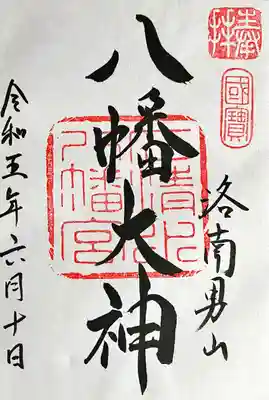 奉拝
國寶
洛南男山
八幡大神
石清水
八幡宮
令和五年六月十日